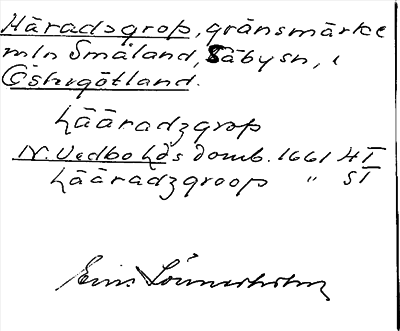 Häradsgrop, gränsmärke
mln Småland, Säbysn, i
Östergötland.
Hääradzgrop
N. Vedbo hds domb. 1661 4I
Hääradzgroop " 5I